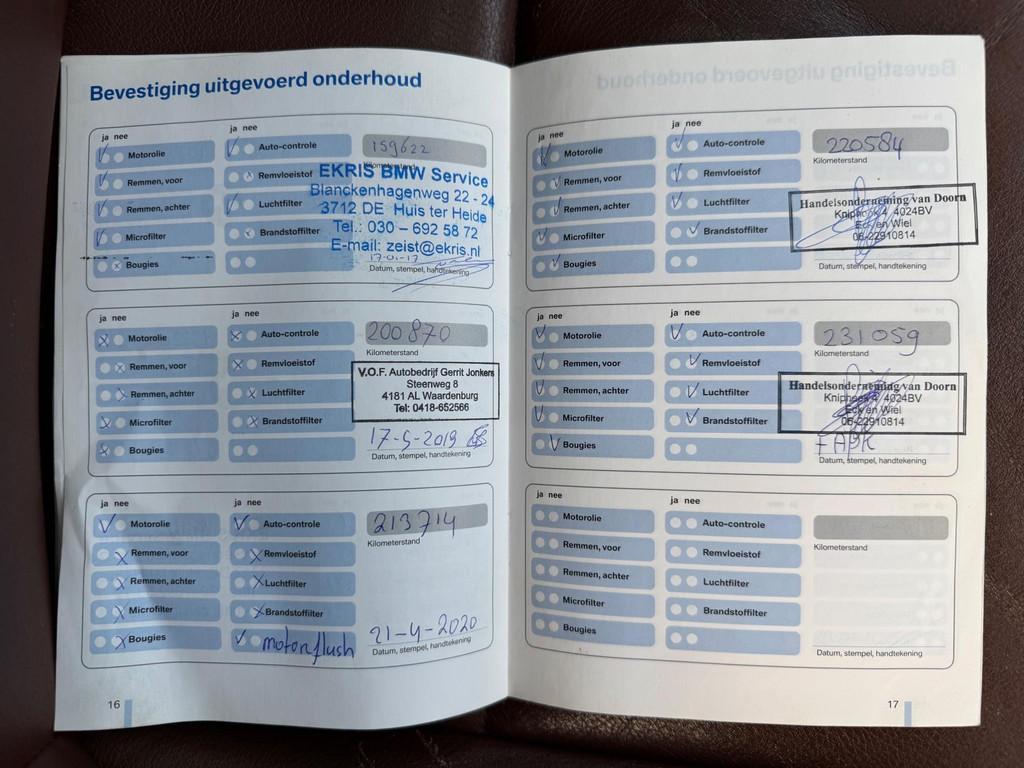 Bevestiging uitgevoerd onderhoud
ja nee
ja nee
Motorolie
Auto-controle
159622
Kilometerstand
Remmen, voor
Remvloeistof
Remmen, achter
Luchtfilter
Microfilter
Brandstoffilter
Bougies
EKRIS BMW Service
Blanckenhagenweg 22 - 24
3712 DE Huis ter Heide
Tel.: 030 – 692 58 72
E-mail: zeist@ekris.nl
17-01-17
Datum, stempel, handtekening
ja nee
ja nee
Motorolie
Auto-controle
200870
Kilometerstand
Remmen, voor
Remvloeistof
Remmen, achter
Luchtfilter
Microfilter
Brandstoffilter
Bougies
V.O.F. Autobedrijf Gerrit Jonkers
Steenweg 8
4181 AL Waardenburg
Tel: 0418-652566
17-5-2019
Datum, stempel, handtekening
ja nee
ja nee
Motorolie
Auto-controle
213714
Kilometerstand
Remmen, voor
Remvloeistof
Remmen, achter
Luchtfilter
Microfilter
Brandstoffilter
Bougies
motorflush
21-4-2020
Datum, stempel, handtekening
16
ja nee
ja nee
Motorolie
Auto-controle
220584
Kilometerstand
Remmen, voor
Remvloeistof
Remmen, achter
Luchtfilter
Microfilter
Brandstoffilter
Bougies
Handelsonderneming van Doorn
Kniphoek 4 4024BV
Eck en Wiel
06-22910814
Datum, stempel, handtekening
ja nee
ja nee
Motorolie
Auto-controle
231059
Kilometerstand
Remmen, voor
Remvloeistof
Remmen, achter
Luchtfilter
Microfilter
Brandstoffilter
Bougies
Handelsonderneming van Doorn
Kniphoek 4 4024BV
Eck en Wiel
06-22910814
Datum, stempel, handtekening
ja nee
ja nee
Motorolie
Auto-controle
Kilometerstand
Remmen, voor
Remvloeistof
Remmen, achter
Luchtfilter
Microfilter
Brandstoffilter
Bougies
Datum, stempel, handtekening
17